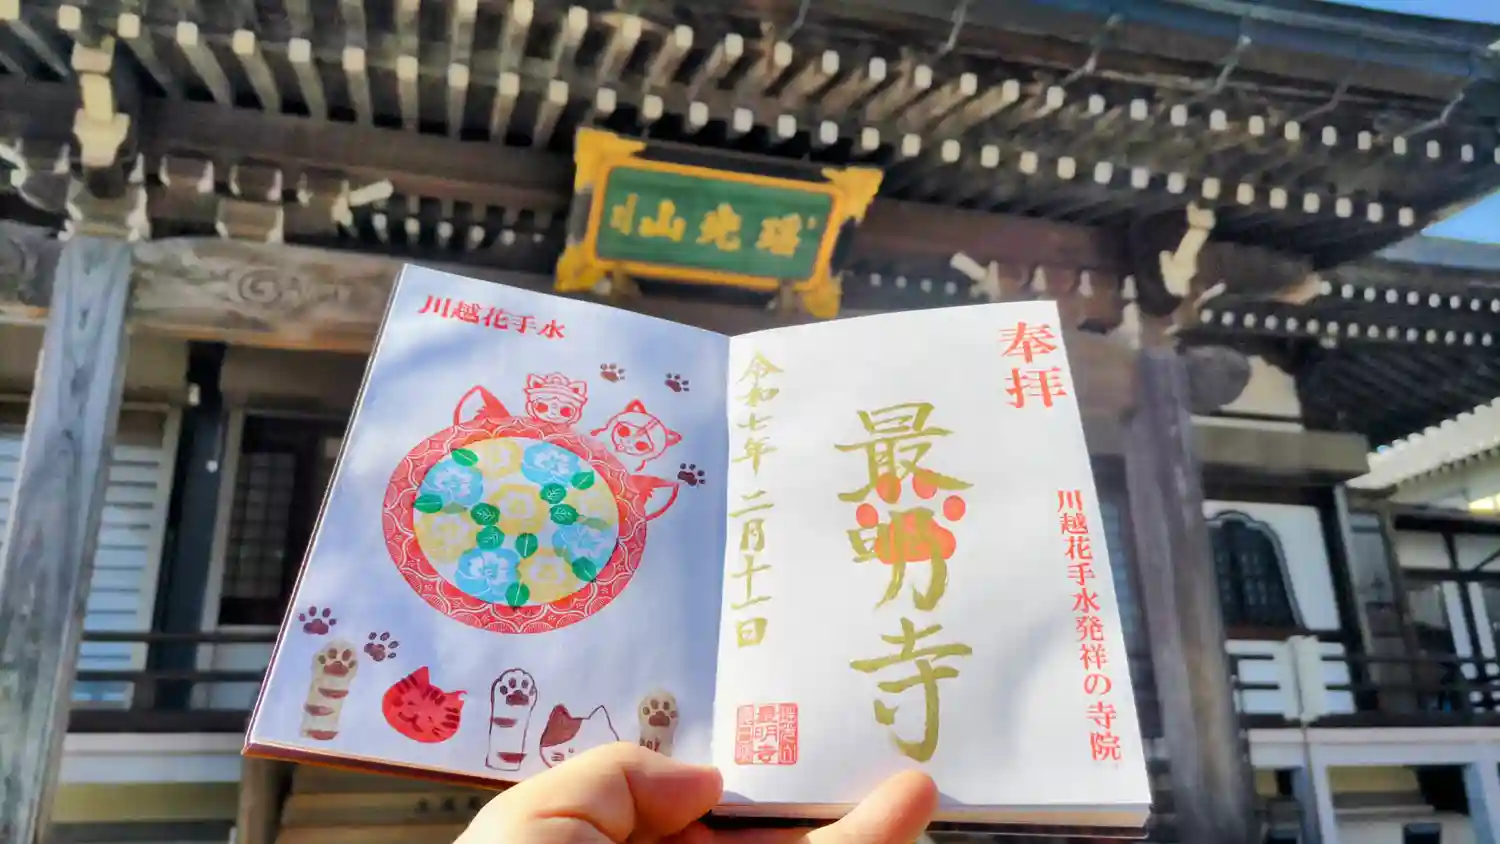 瑶光山
川越花手水
奉拝
川越花手水発祥の寺院
最明寺
令和七年 二月十一日
最明寺